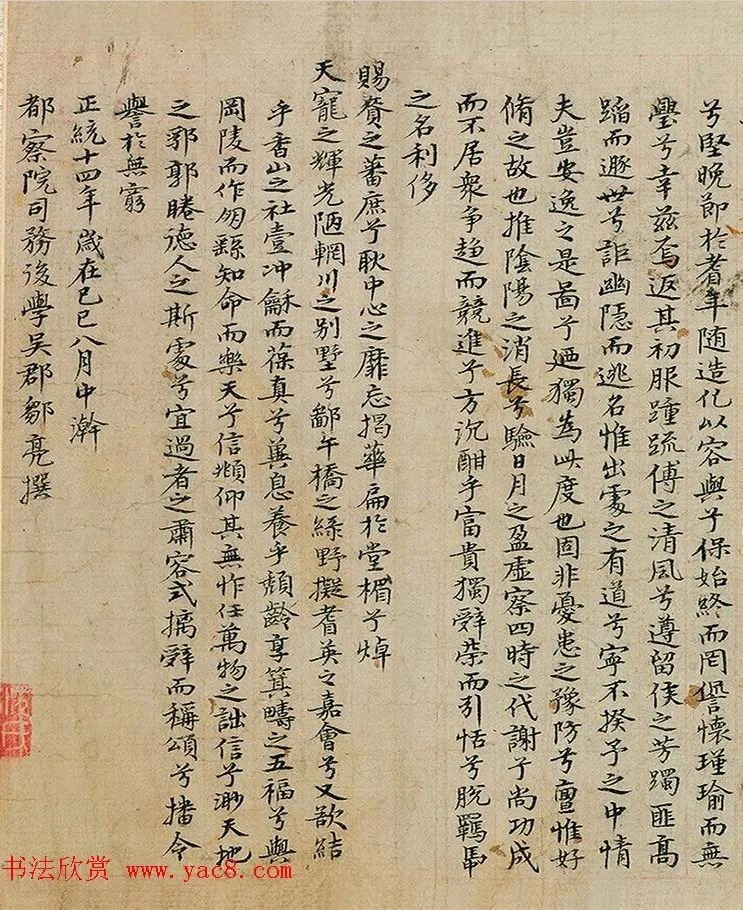 兮堅晚節於耆年随造化以容與兮保始終而罔諐懷瑾瑜而無
璺兮幸兹焉返其初服踵疏傅之清風兮遵留侯之芳躅匪高
蹈而遯世兮詎幽隱而逃名惟出處之有道兮寧不揆予之中情
夫豈安逸之是啚兮廼獨為此度也固非憂患之豫防兮亶惟好
脩之故也推陰陽之消長兮驗日月之盈虚察四時之代謝兮尚功成
而不居衆争趋而競進兮方沉酣乎富貴獨辭榮而引恬兮脱羈馽
之名利侈
賜賚之蕃庶兮耿中心之靡忘揭華扁於堂楣兮焯
天寵之輝光陋輞川之别墅兮鄙午橋之緑野擬耆英之嘉會兮又欲結
乎香山之社壹冲龢而葆真兮兾息養乎頽齡享箕疇之五福兮與
岡陵而作朋繇知命而樂天兮信頫仰其無怍任萬物之詘信兮渺天地
之郛郭睠徳人之斯處兮宜過者之肅容式摛辭而稱頌兮播令
譽於無窮
正統十四年歲在己巳八月中澣
都察院司務後學吴郡鄒亮撰
书法欣赏 www.yac8.com